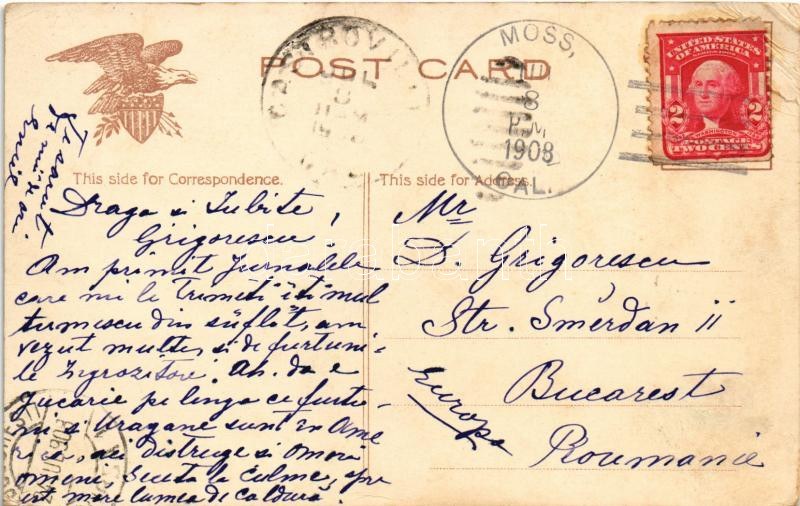 POST CARD
MOSS,
JUL
8
P.M
1908
CAL.
UNITED STATES
OF AMERICA
2 2
WASHINGTON
POSTAGE
TWO CENTS
This side for Correspondence.
This side for Address.
Draga si Iubite,
Grigorescu.
Am primit Jurnalele
care mi le Trimeti iti mul
tumescu din suflet, am
vezut multe si de furtuni
le Ingrozitoare. da e
jucarie pe linga ce furtu
ni si Uragane sunt in Ame
rica, aci distruge si omori
omeni la culme,
est mare lumea de caldură.
Mr
D. Grigorescu
Str. Smérdan 11
Bucarest
Europa
Roumanie